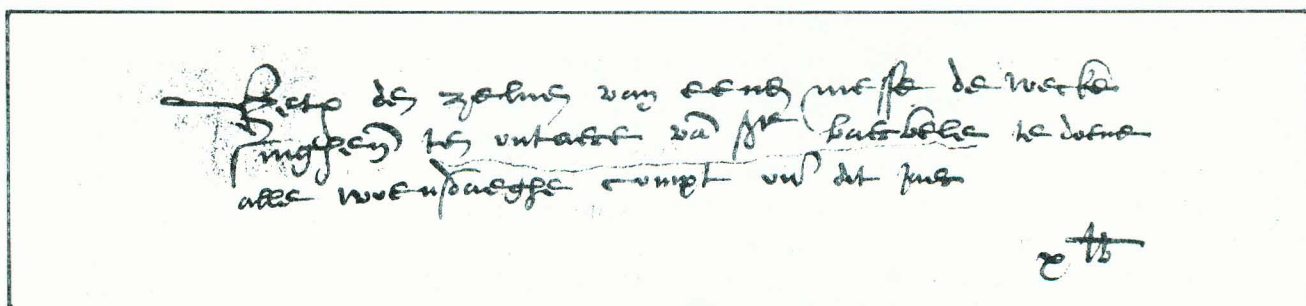 Item den zeluen van eene messe de weke
singhen ten outaere vā ste baerbele te doene
alle woensdaeghe compt ouer dit jaer
x lb